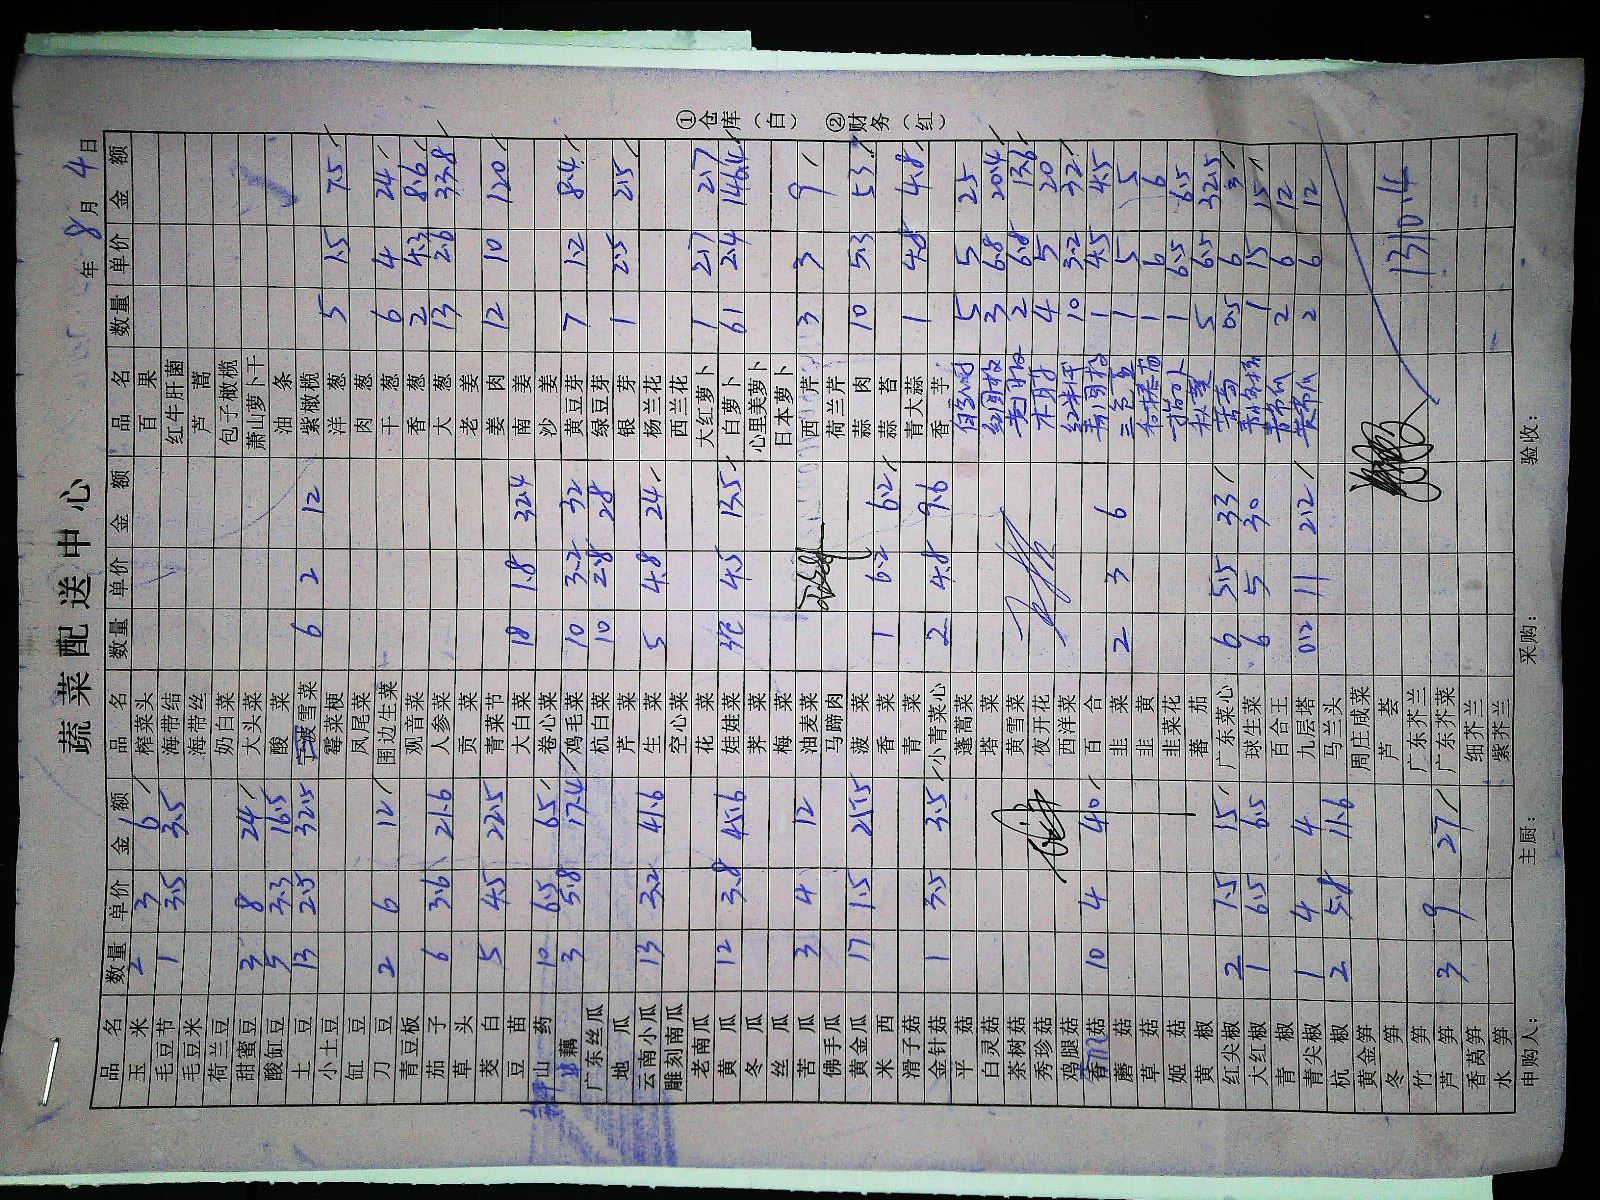 蔬菜配送中心
年 8 月 4 日
品名 数量 单价 金额 品名 数量 单价 金额 品名 数量 单价 金额
玉米 2 3 6 榨菜头 百果
毛豆节 1 3.5 3.5 海带结 红牛肝菌
毛豆米 海带丝 芦蒿
荷兰豆 奶白菜 包子橄榄
甜蜜豆 3 8 24 大头菜 萧山萝卜干
酸缸豆 5 3.3 16.5 酸菜 油条
土豆 13 2.5 32.5 宁波雪菜 6 2 12 紫橄榄
小土豆 霉菜梗 洋葱 5 1.5 7.5
缸豆 凤尾菜 肉葱
刀豆 2 6 12 围边生菜 干葱 6 4 24
青豆板 观音菜 香葱 2 4.3 8.6
茄子 6 3.6 21.6 人参菜 大葱 13 2.6 33.8
草头 贡菜 老姜
茭白 5 4.5 22.5 青菜节 姜肉 12 10 120
豆苗 大白菜 18 1.8 32.4 南姜
山药 10 6.5 65 卷心菜 沙姜
藕 3 5.8 17.4 鸡毛菜 10 3.2 32 黄豆芽 7 1.2 8.4
广东丝瓜 杭白菜 10 2.8 28 绿豆芽
地瓜 芹菜 银芽 1 2.5 2.5
云南小瓜 13 3.2 41.6 生菜 5 4.8 24 杨兰花
雕刻南瓜 空心菜 西兰花
老南瓜 花菜 大红萝卜 1 2.7 2.7
黄瓜 12 3.8 45.6 娃娃菜 3包 4.5 13.5 白萝卜 61 2.4 146.4
冬瓜 荠菜 心里美萝卜
丝瓜 梅菜 日本萝卜
苦瓜 3 4 12 油麦菜 西芹 3 3 9
佛手瓜 马蹄肉 荷兰芹
黄金瓜 17 1.5 25.5 菠菜 蒜肉 10 5.3 53
米西 香菜 1 6.2 6.2 蒜苔
滑子菇 青菜 青大蒜 1 4.8 4.8
金针菇 1 3.5 3.5 小青菜心 2 4.8 9.6 香芋
平菇 蓬蒿菜 5 5 25
白灵菇 塔菜 红圆椒 3 6.8 20.4
茶树菇 黄雪菜 黄圆椒 2 6.8 13.6
秀珍菇 夜开花 木耳 4 5 20
鸡腿菇 西洋菜 10 3.2 32
香菇 10 4 40 百合 青圆椒 1 4.5 4.5
蘑菇 韭菜 2 3 6 1 5 5
草菇 韭黄 1 6 6
姬菇 韭菜花 1 6.5 6.5
黄椒 蕃茄 秋葵 5 6.5 32.5
红尖椒 2 7.5 15 广东菜心 6 5.5 33 苦菊 0.5 6 3
大红椒 1 6.5 6.5 球生菜 6 5 30 1 15 15
青椒 百合王 2 6 12
青尖椒 1 4 4 九层塔 0.2 11 2.2 2 6 12
杭椒 2 5.8 11.6 马兰头
黄金笋 周庄咸菜
冬笋 芦荟
竹笋 广东芥兰 1310.4
芦笋 3 9 27 广东芥菜
香莴笋 细芥兰
水笋 紫芥兰
申购人: 主厨: 采购: 验收:
①仓库(白) ②财务(红)